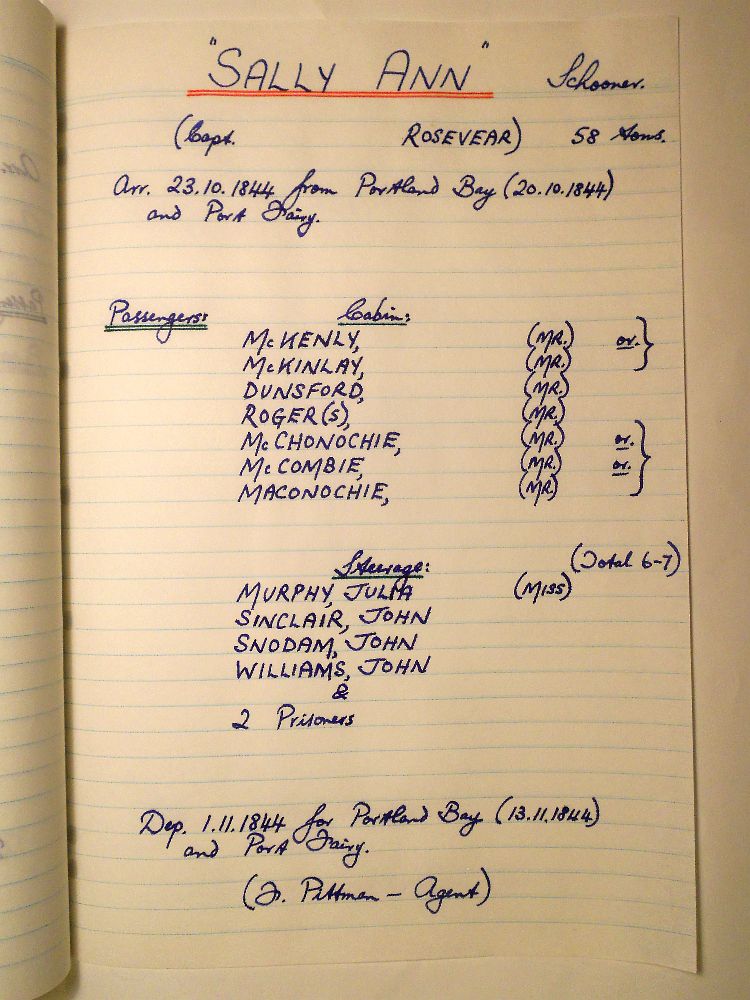 "SALLY ANN" Schooner.
(Capt. ROSEVEAR) 58 tons.
Arr. 23.10.1844 from Portland Bay (20.10.1844)
and Port Fairy.
Passengers: Cabin:
McKENLY, (MR.) or.
McKINLAY, (MR.)
DUNSFORD, (MR.)
ROGER(S), (MR.)
McCHONOCHIE, (MR.) or.
McCOMBIE, (MR.) or.
MACONOCHIE, (MR.)
Steerage: (Total 6-7)
MURPHY, JULIA (MISS)
SINCLAIR, JOHN
SNODAM, JOHN
WILLIAMS, JOHN
&
2 Prisoners
Dep. 1.11.1844 for Portland Bay (13.11.1844)
and Port Fairy.
(J. Pittman - Agent)